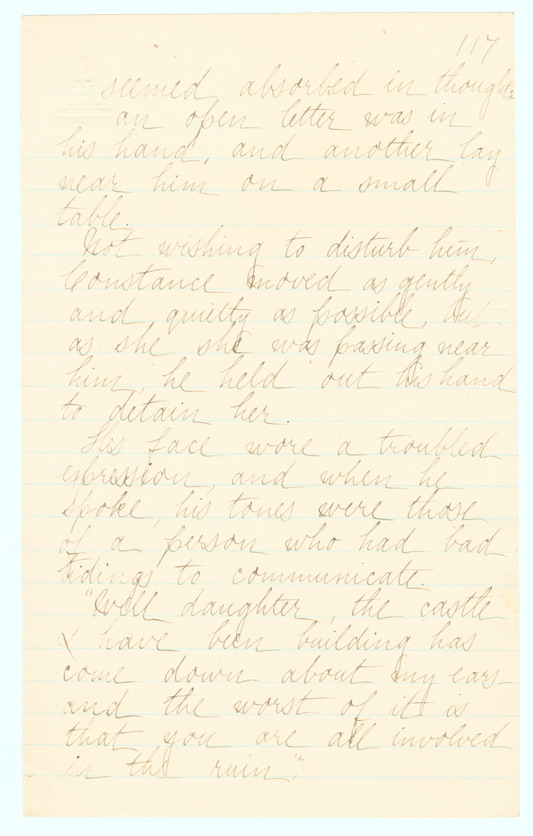 117
seemed absorbed in thought;
an open letter was in
his hand, and another lay
near him on a small
table.
Not wishing to disturb him,
Constance moved as gently
and quietly as possible, but
as she she was passing near
him, he held out his hand
to detain her.
His face wore a troubled
expression, and when he
spoke, his tones were those
of a person who had bad
tidings to communicate.
"Well daughter, the castle
I have been building has
come down about my ears—
and the worst of it is
that you are all involved
in the ruin".